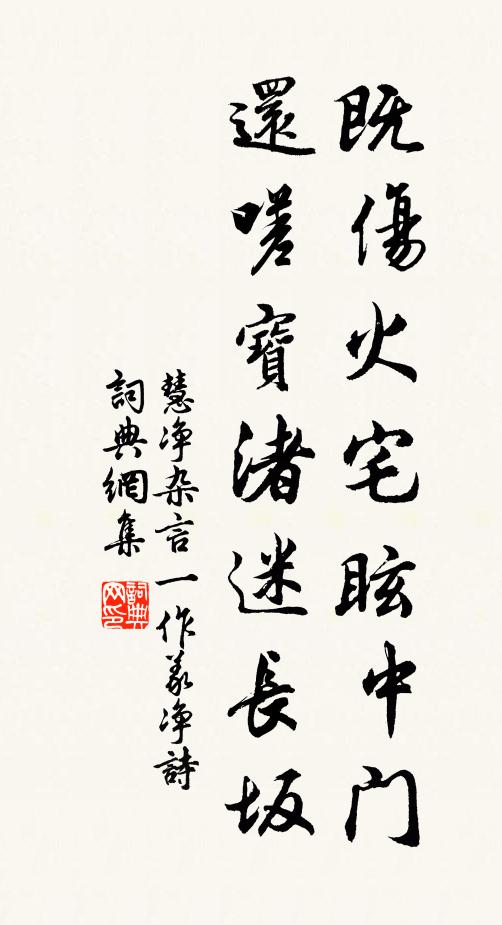 既傷火宅眩中門
還嗟寶渚迷長坂
慧净杂言一作義净詩
詞典網集
詞典
网印